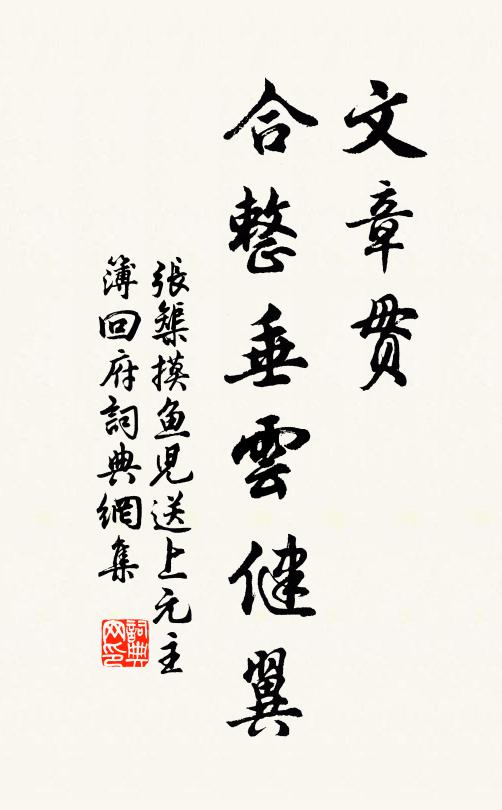 文章贯
合整垂雲健翼
張榘摸鱼児送上元主
簿回府詞典網集
詞典网印